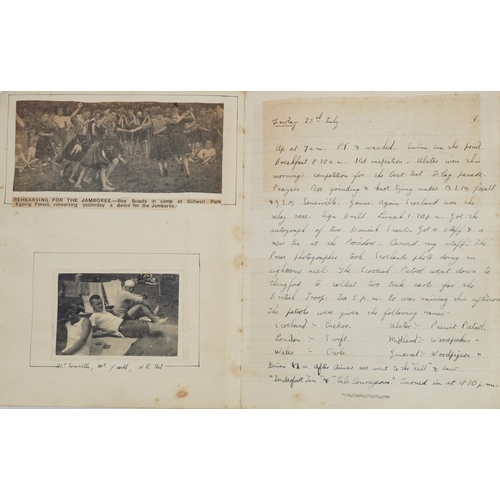 REHEARSING FOR THE JAMBOREE.—Boy Scouts in camp at Gillwell Park
Epping Forest, rehearsing yesterday a dance for the Jamboree.
Mr Somerville, Mr Yoxall,
Friday 23rd July
Up at 7 a.m. P.T. & washed. Swim in the pond.
Breakfast 8.30 a.m. Kit inspection. Ulster won this
morning's competition for the best tent. Flag parade.
Prayers. Axe grinding & knot tying under D.S.M. Yoxall
& S.M. Somerville. Games. Again Scotland won the
relay race. Sign Drill. Lunch 1.30 p.m. Got the
autograph of two Danish Scouts. Got a staff & a
new tie at the Providore. Carved my staff. The
Press photographer took Scotland's photo doing an
eightsome reel. The Scottish Patrol went down to
Chingford to collect two trek-carts for the
British Troop. Tea 5 p.m. It was raining this afternoon
The patrols were given the following names:-
Scotland:- Curlew. Ulster:- Peewit Patrol.
London:- Swift. Midland:- Woodpecker "
Wales:- Owls. General:- Woodpigeon "
Dinner 8 p.m. After dinner we went to the "Hall" & saw
"Tenderfoot Jim" & "Cub Courageous". Turned in at 10.30 p.m.